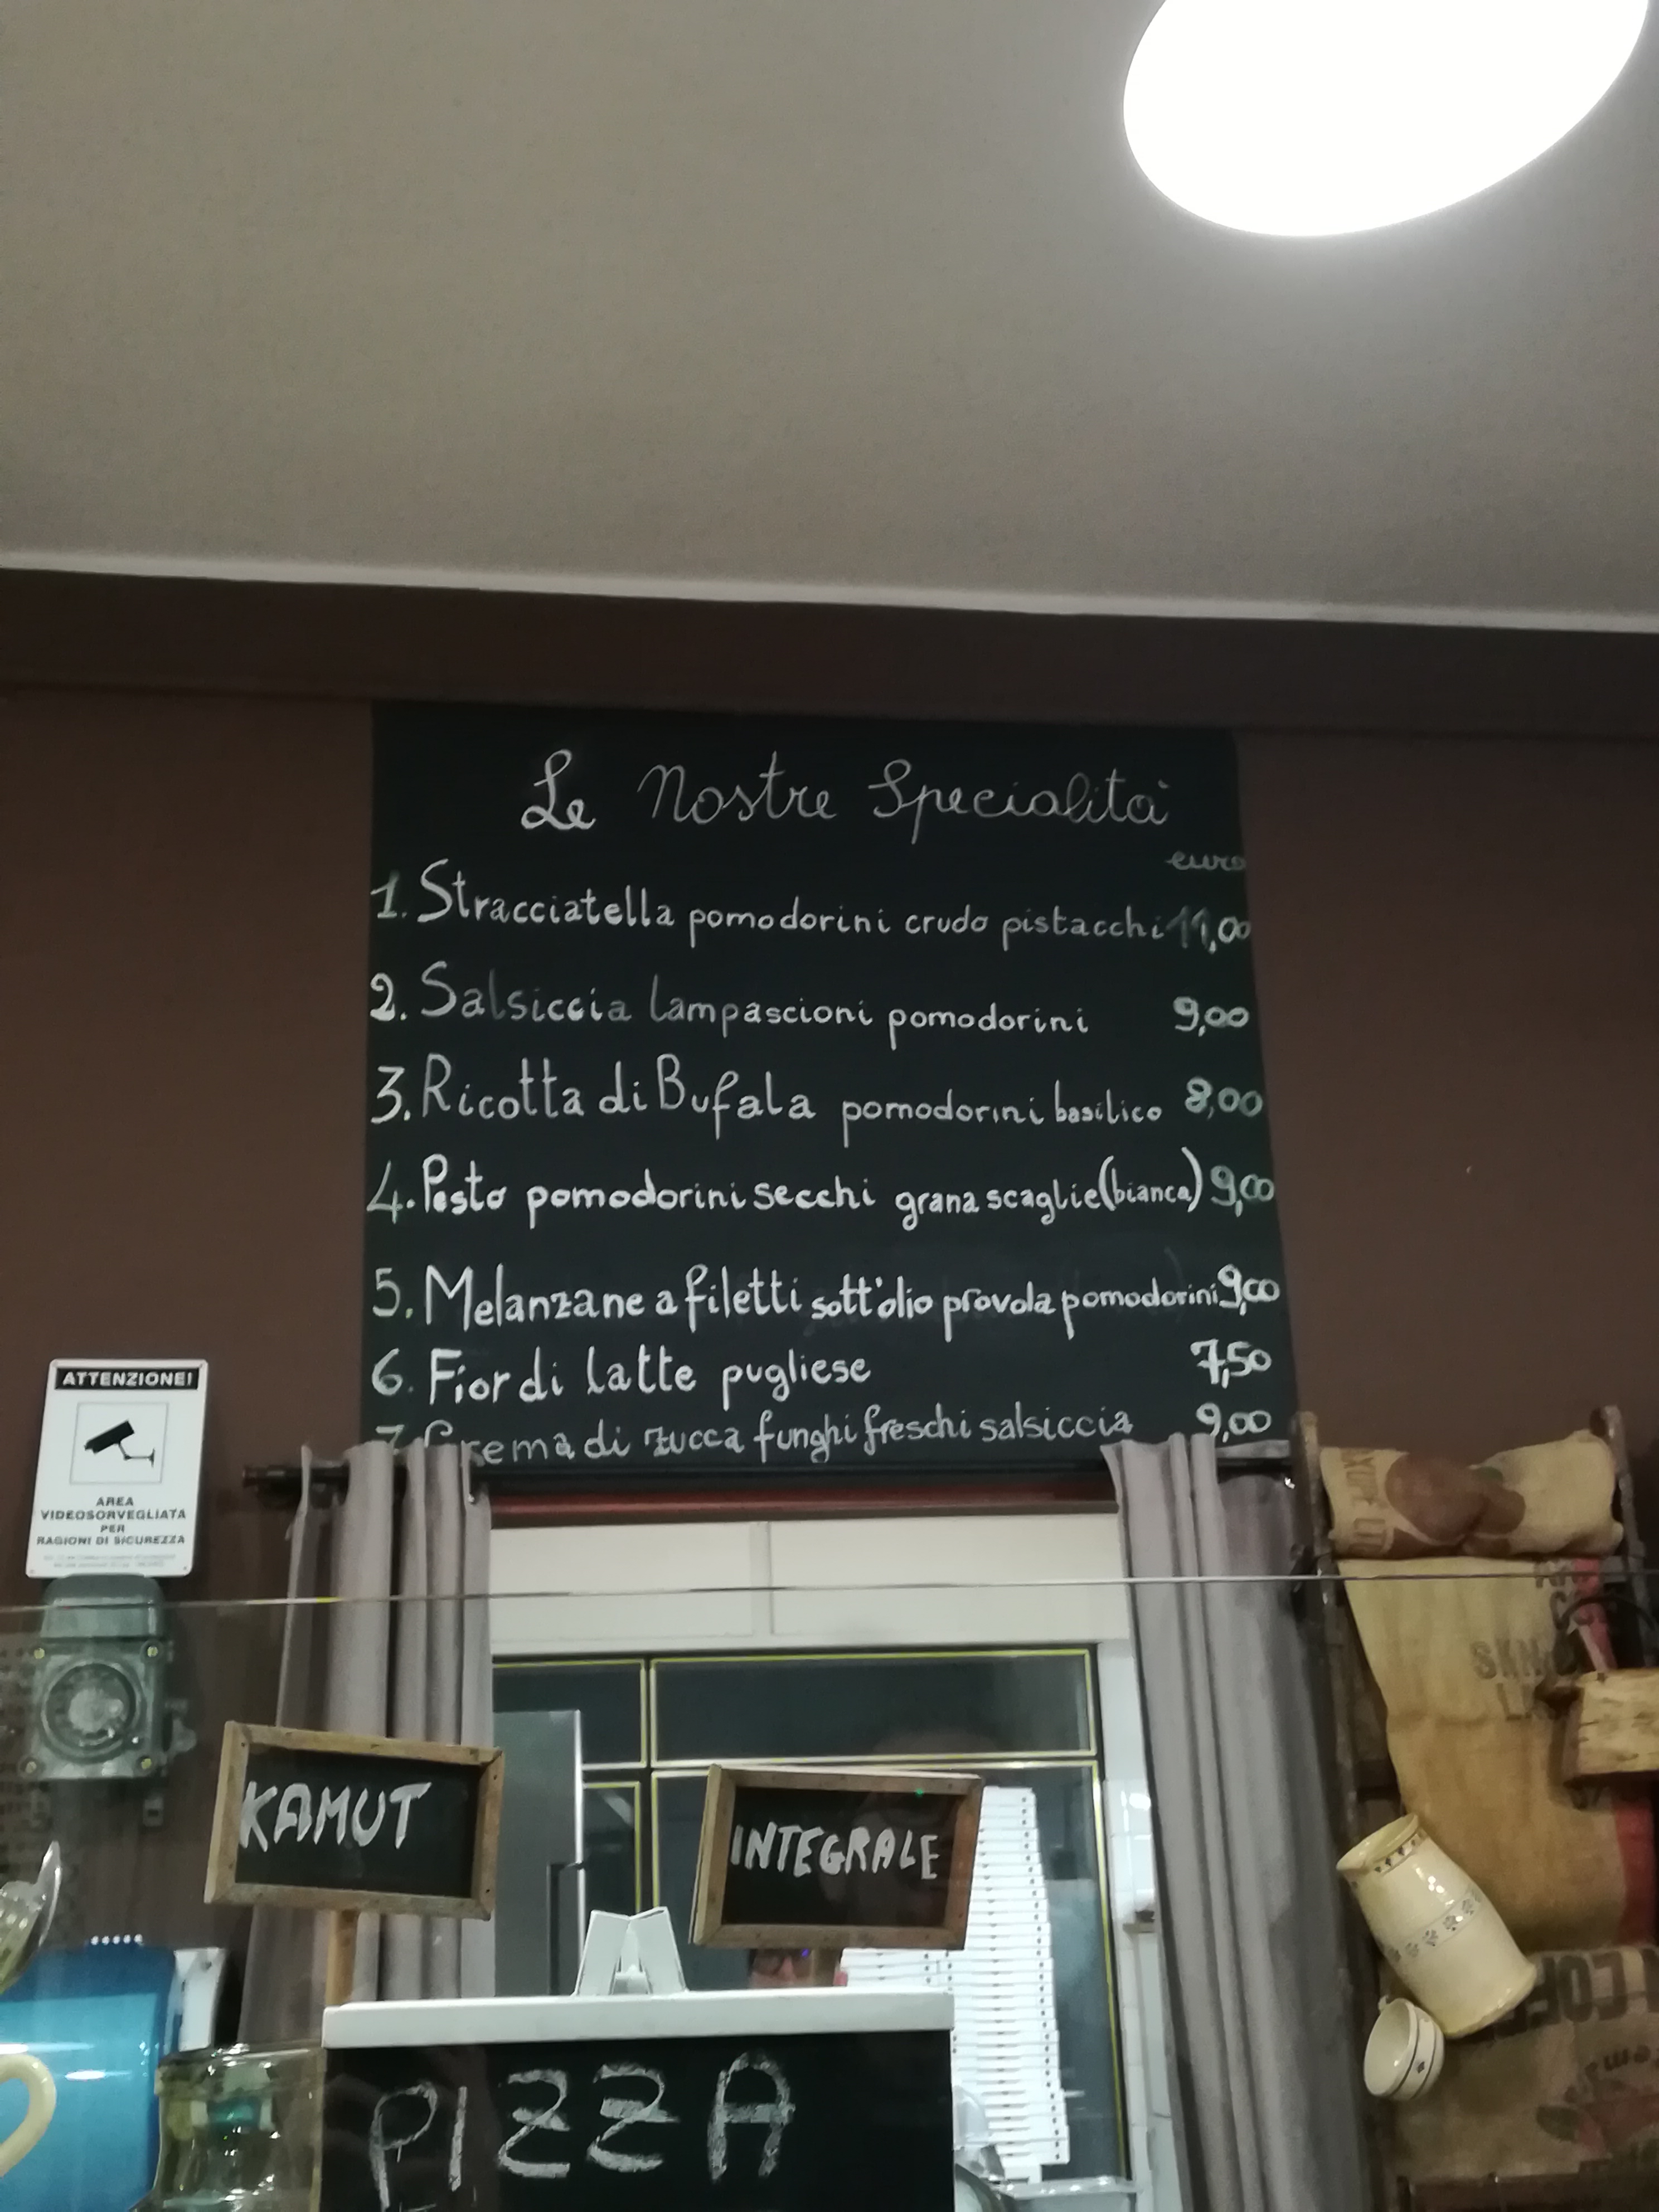 Le Nostre Specialità
euro
1. Stracciatella pomodorini crudo pistacchi 11,00
2. Salsiccia lampascioni pomodorini 9,00
3. Ricotta di Bufala pomodorini basilico 8,00
4. Pesto pomodorini secchi grana scaglie (bianca) 9,00
5. Melanzane a filetti sott'olio provola pomodorini 9,00
6. Fior di latte pugliese 7,50
7. Crema di zucca funghi freschi salsiccia 9,00
ATTENZIONE!
AREA
VIDEOSORVEGLIATA
PER
RAGIONI DI SICUREZZA
KAMUT
INTEGRALE
PIZZA